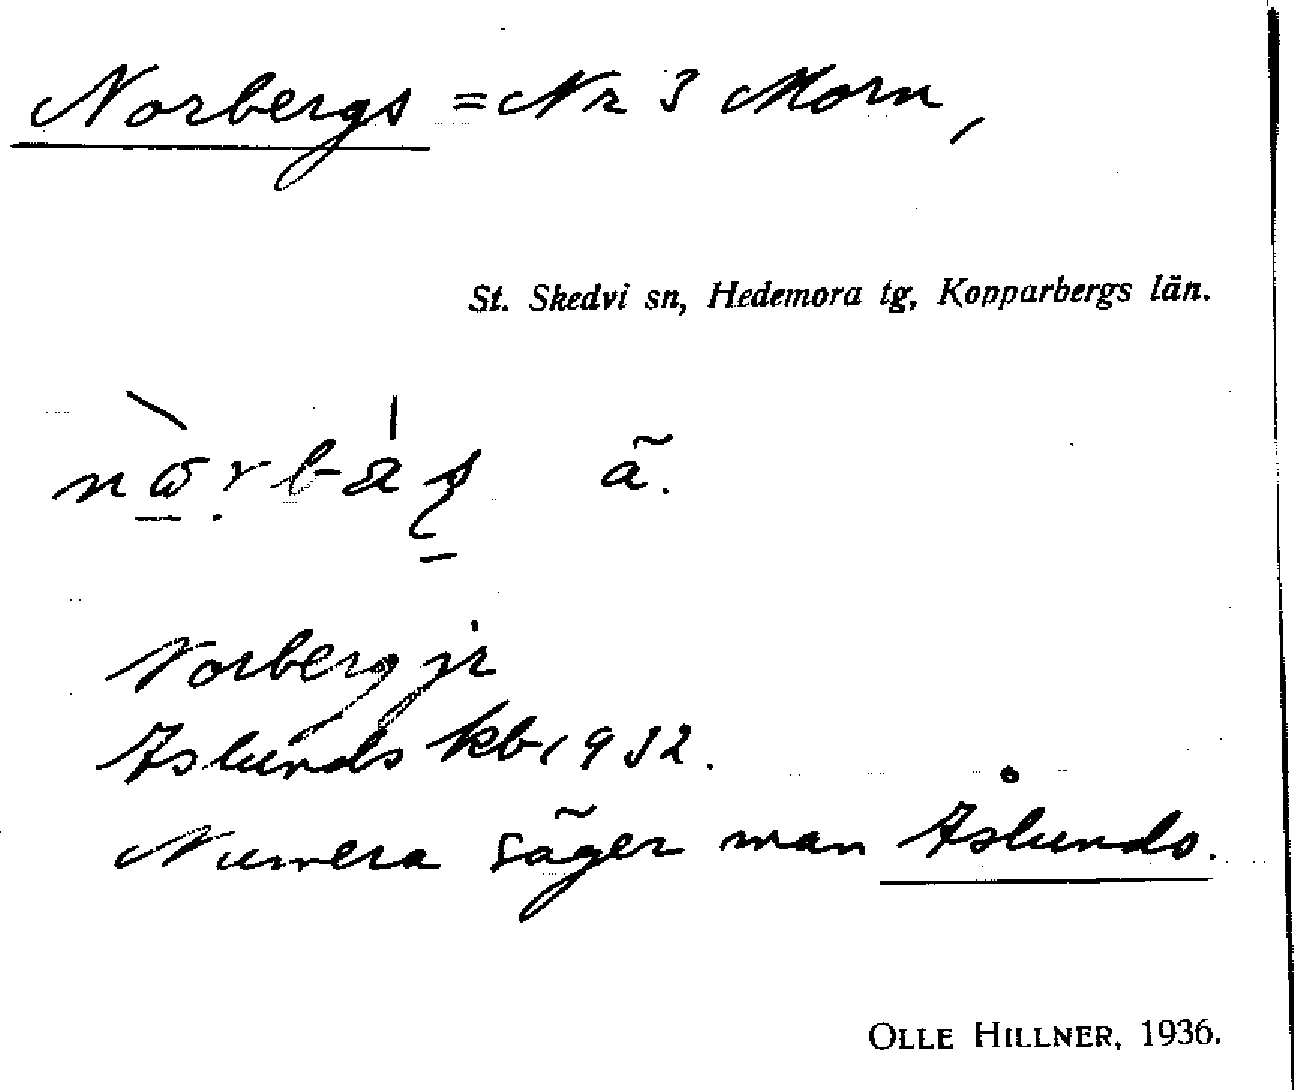 Norbergs = Nr 3 Morn,
St. Skedvi sn, Hedemora tg, Kopparbergs län.
ä.
Norberg jr
Aslunds kb 1932.
Numera säger man Åslunds.
OLLE HILLNER, 1936.